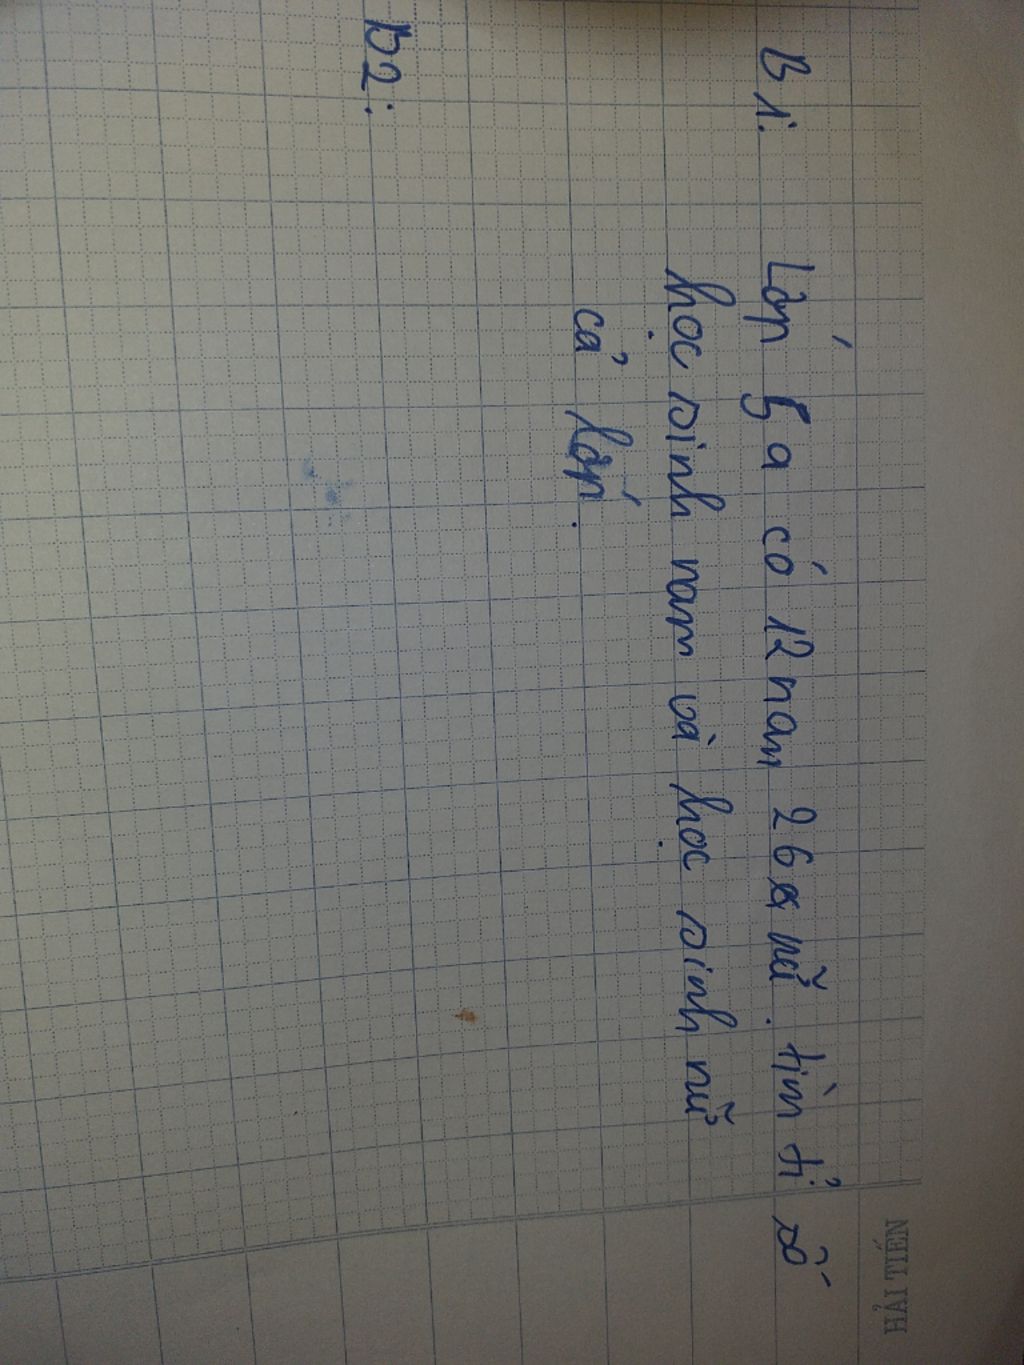 HẢI TIẾN
B1: Lớp 5a có 12 nam 26 nữ. tìm tỉ số
học sinh nam và học sinh nữ
cả lớp.
B2: